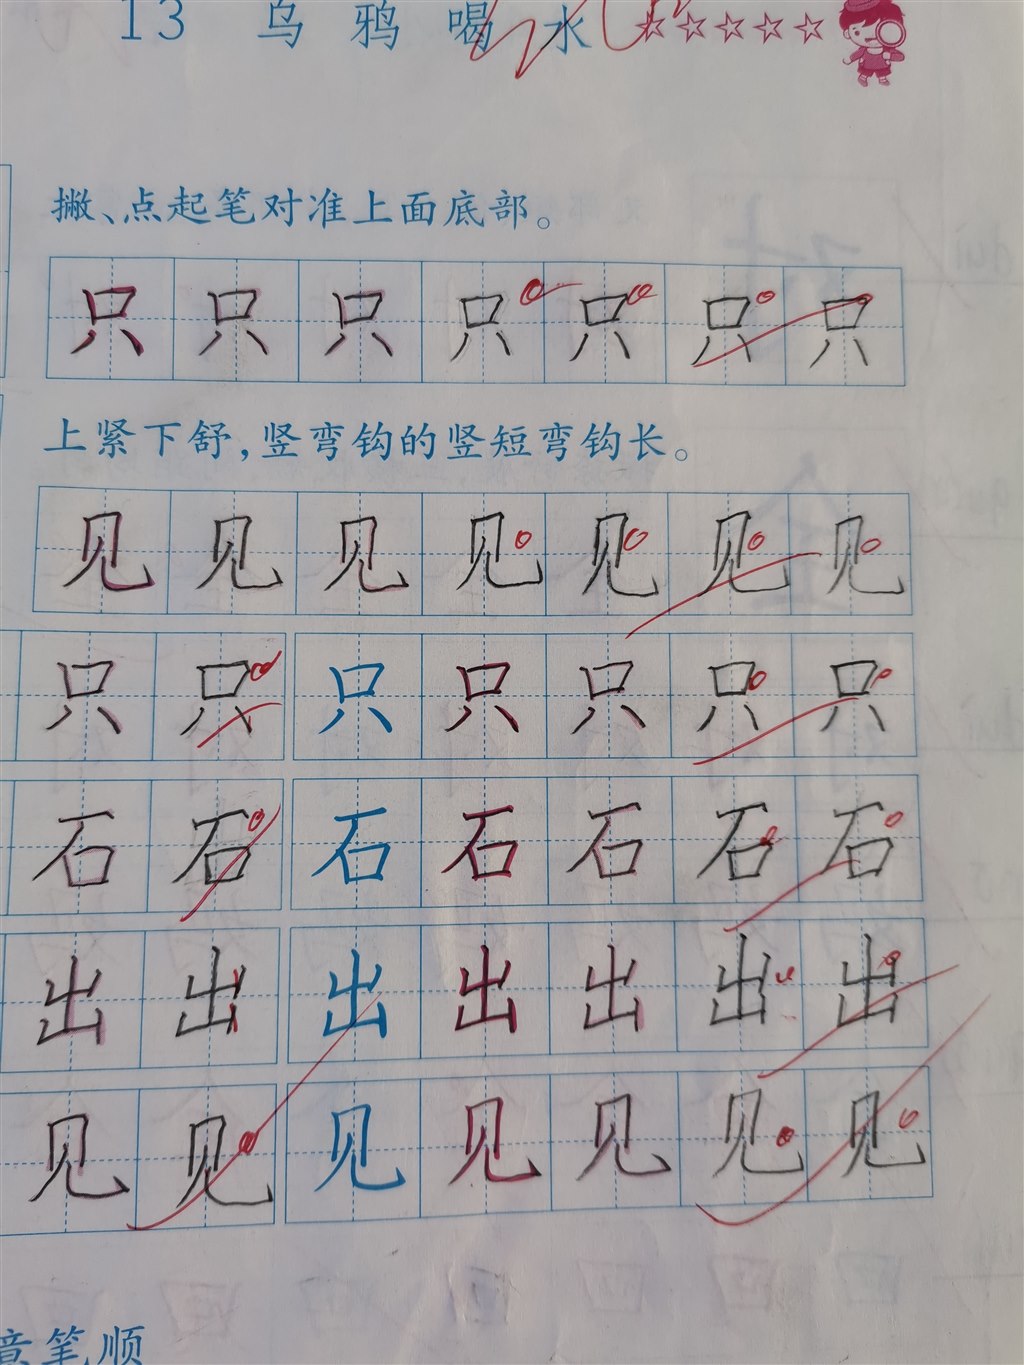 13 乌鸦喝水
撇、点起笔对准上面底部。
只 只 只 只 只 只 只
上紧下舒,竖弯钩的竖短弯钩长。
见 见 见 见 见 见 见
只 只 只 只 只 只 只
石 石 石 石 石 石 石
出 出 出 出 出 出 出
见 见 见 见 见 见 见
意笔顺